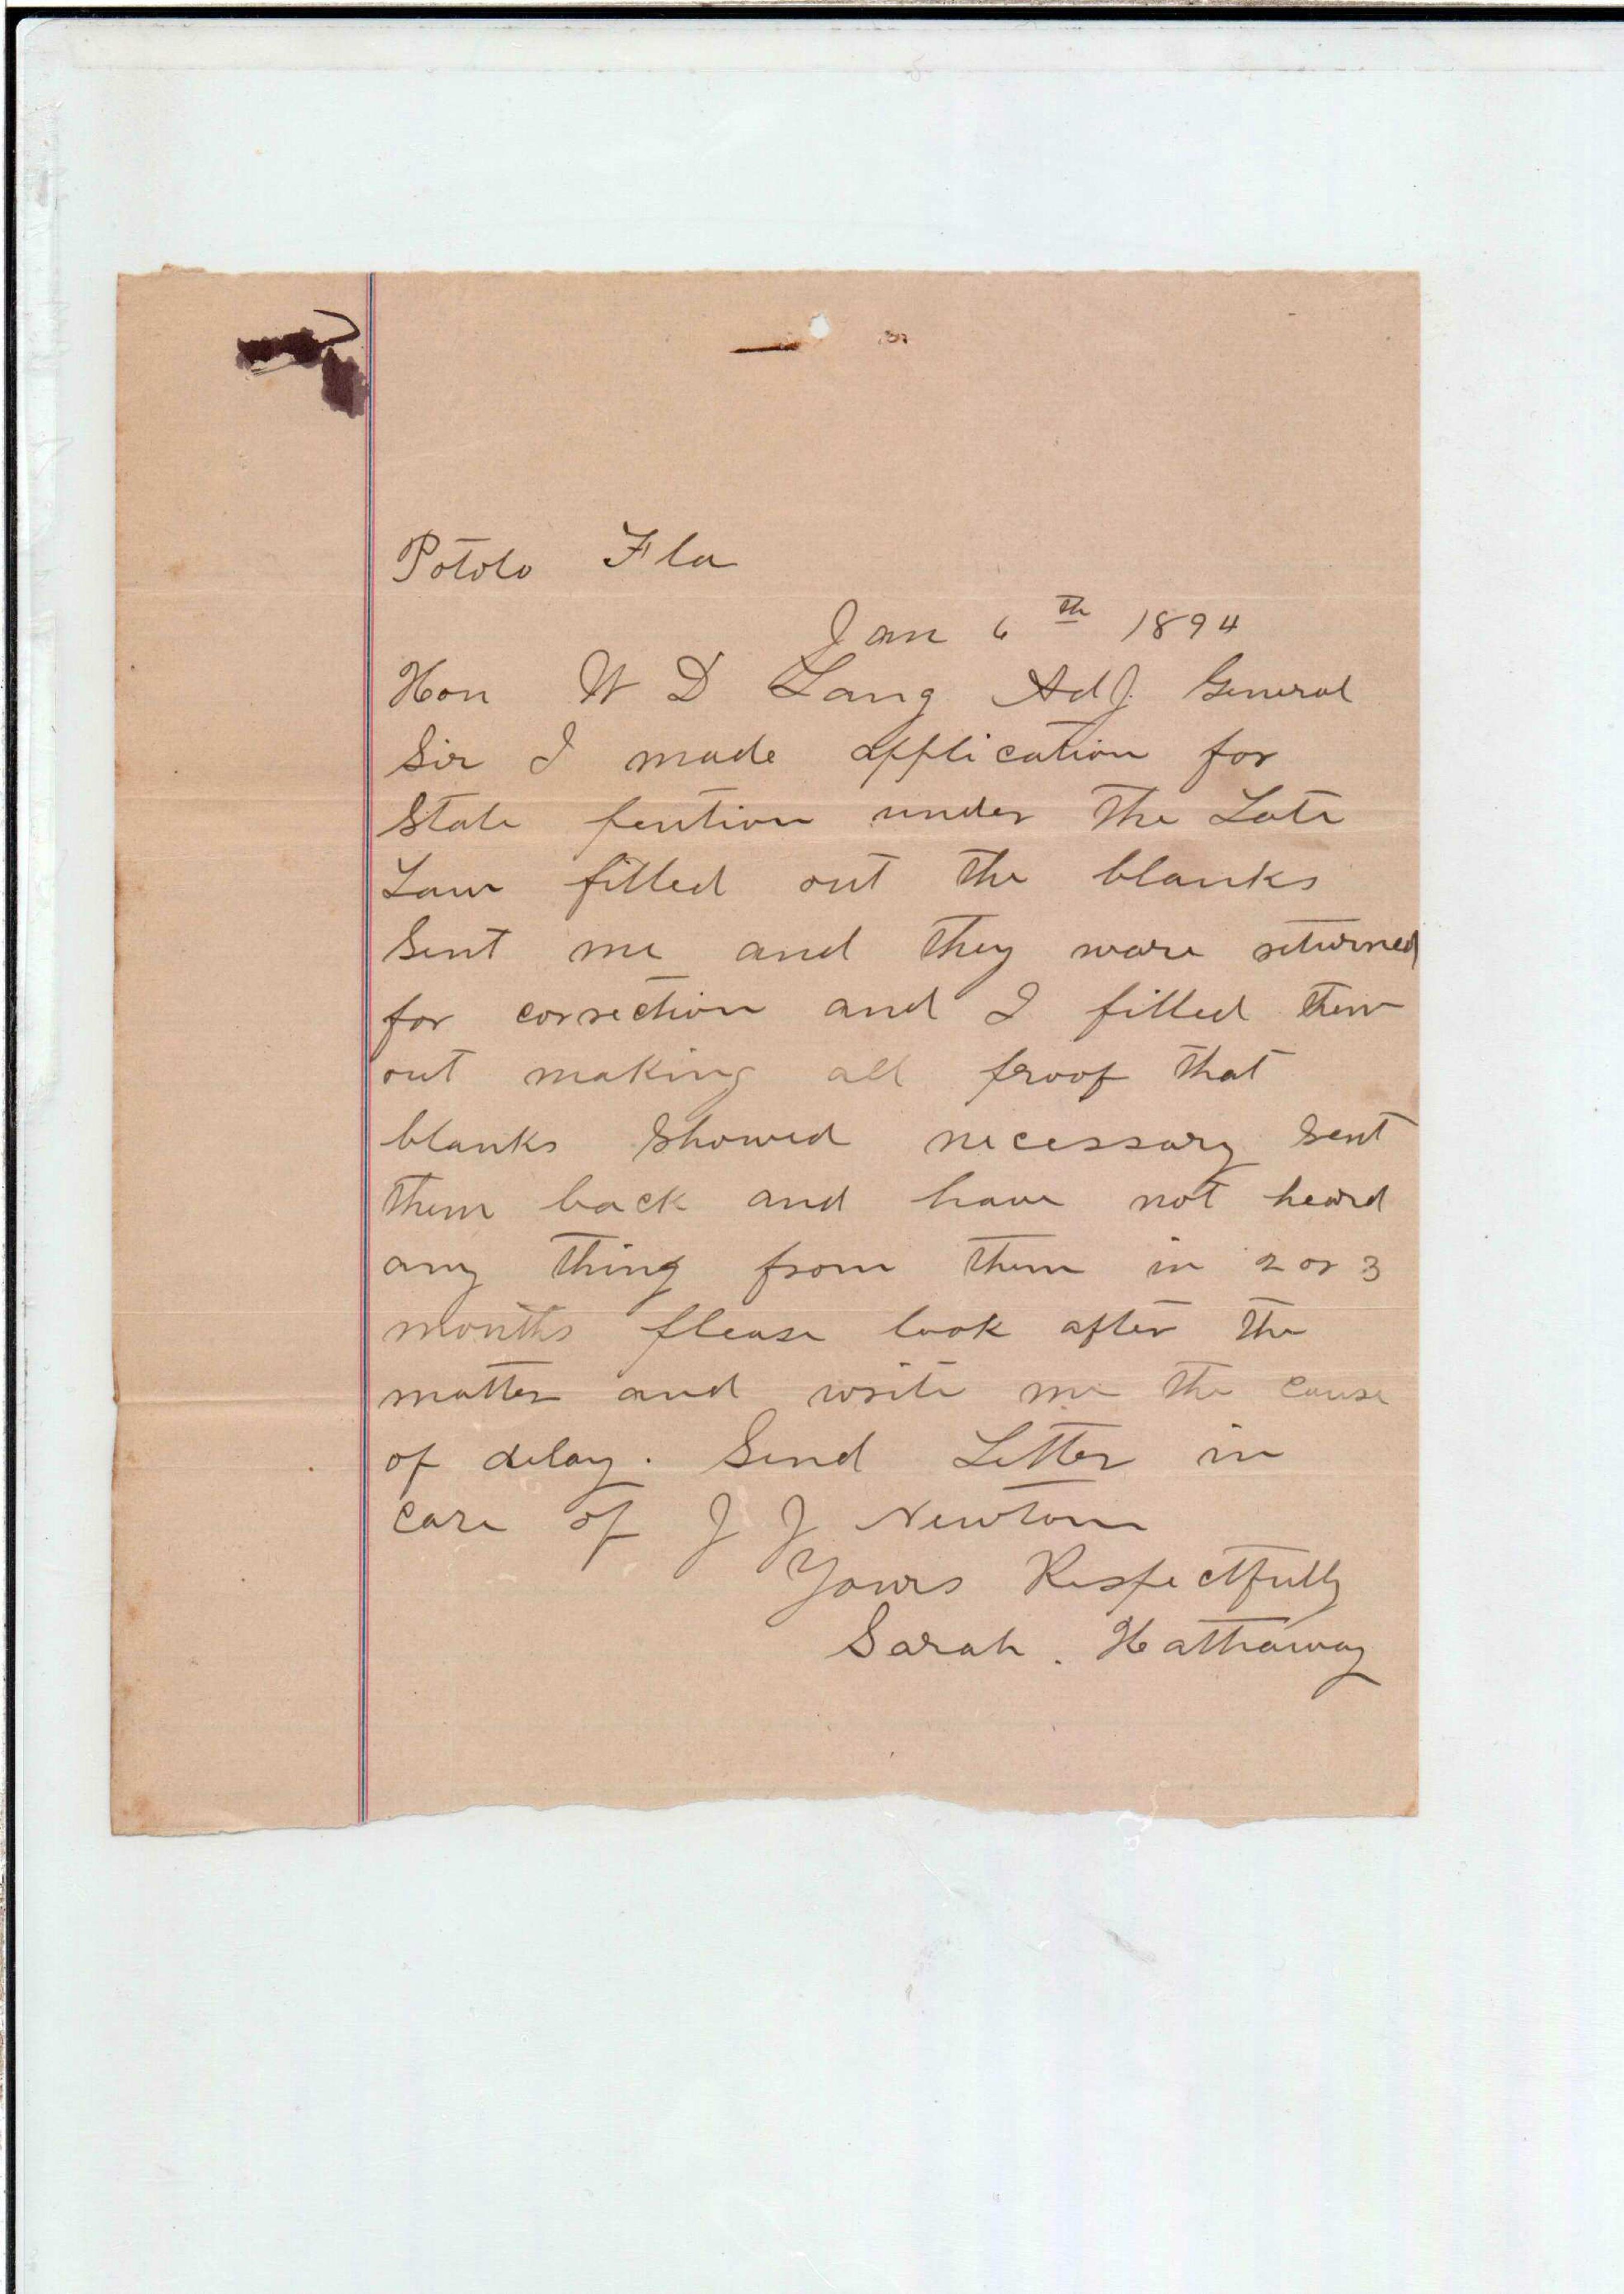 Pototo Fla
Jan 6th 1894
Hon W D Lang AdJ. General
Sir I made application for
State pention under The Late
Law filled out the blanks
Sent me and They ware returned
for correction and I filled them
out making all proof that
blanks Showed necessary Sent
Them back and have not heard
any thing from them in 2 or 3
months please look after the
matter and write me the cause
of delay. Send Letter in
care of J J Newton
Yours Respectfully
Sarah. Hathaway